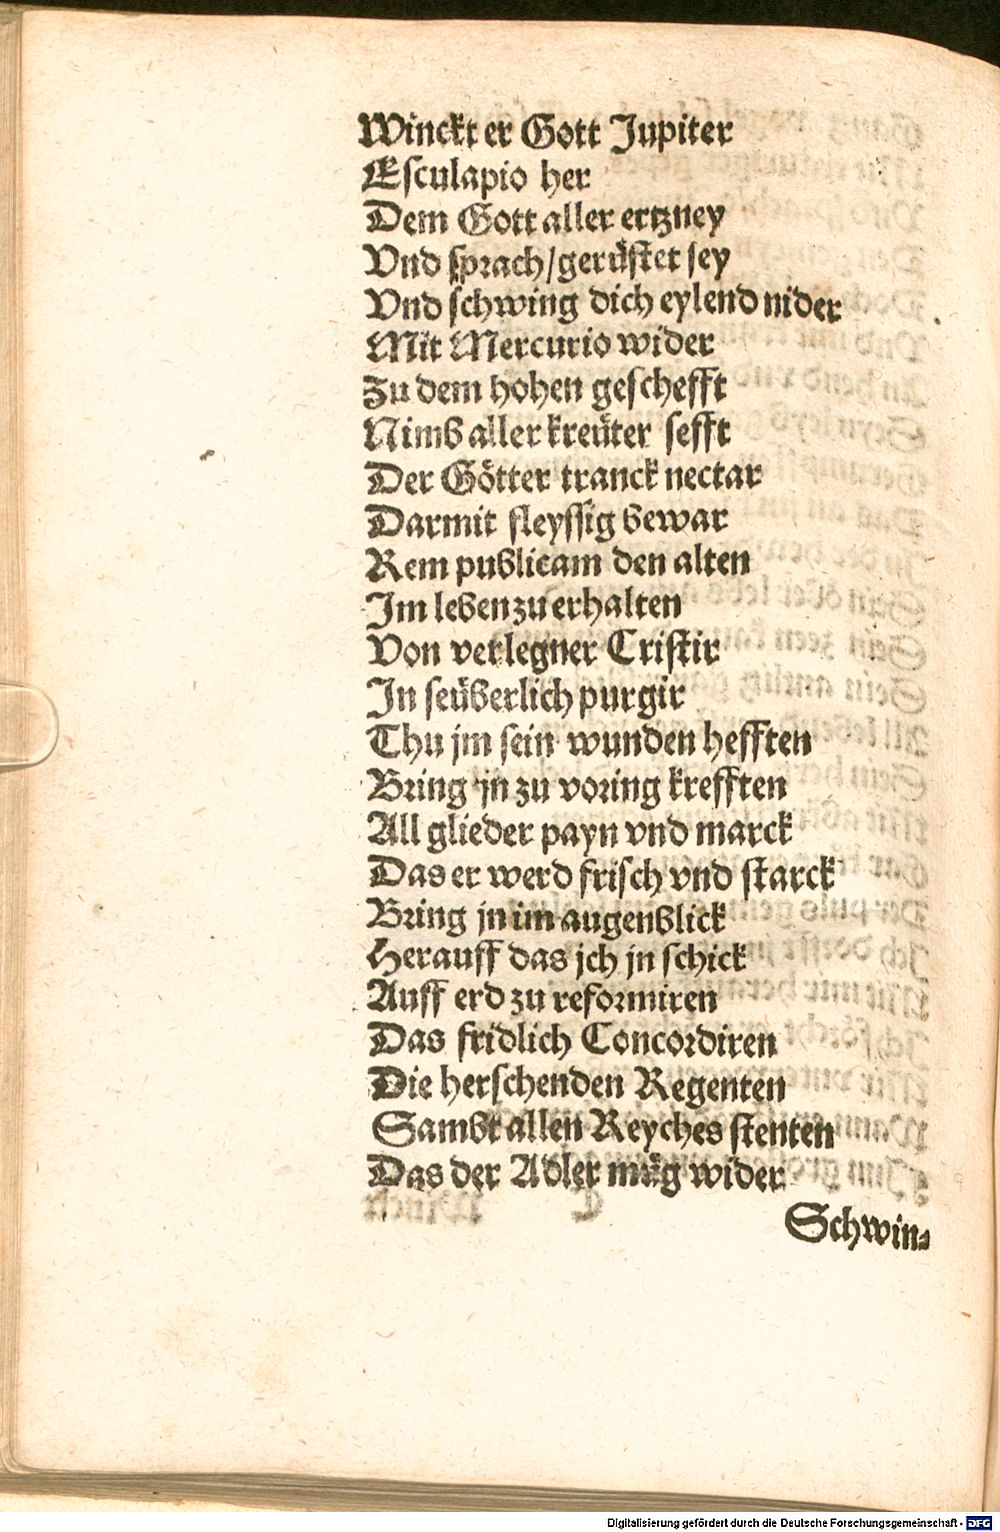 Winckt er Gott Jupiter
Esculapio her
Dem Gott aller ertzney
Vnd sprach/gerüstet sey
Vnd schwing dich eylend nider
Mit Mercurio wider
Zu dem hohen geschefft
Nimb aller kreüter sefft
Der Götter tranck nectar
Darmit fleyssig bewar
Rem publicam den alten
Im leben zu erhalten
Von verlegner Cristir
In seüberlich purgir
Thu jm sein wunden hefften
Bring jn zu voring krefften
All glieder payn vnd marck
Das er werd frisch vnd starck
Bring jn im augenblick
Herauff das jch jn schick
Auff erd zu reformiren
Das fridlich Concordiren
Die herschenden Regenten
Sambt allen Reyches stenten
Das der Adler müg wider
Schwin⸗
Digitalisierung gefördert durch die Deutsche Forschungsgemeinschaft - DFG